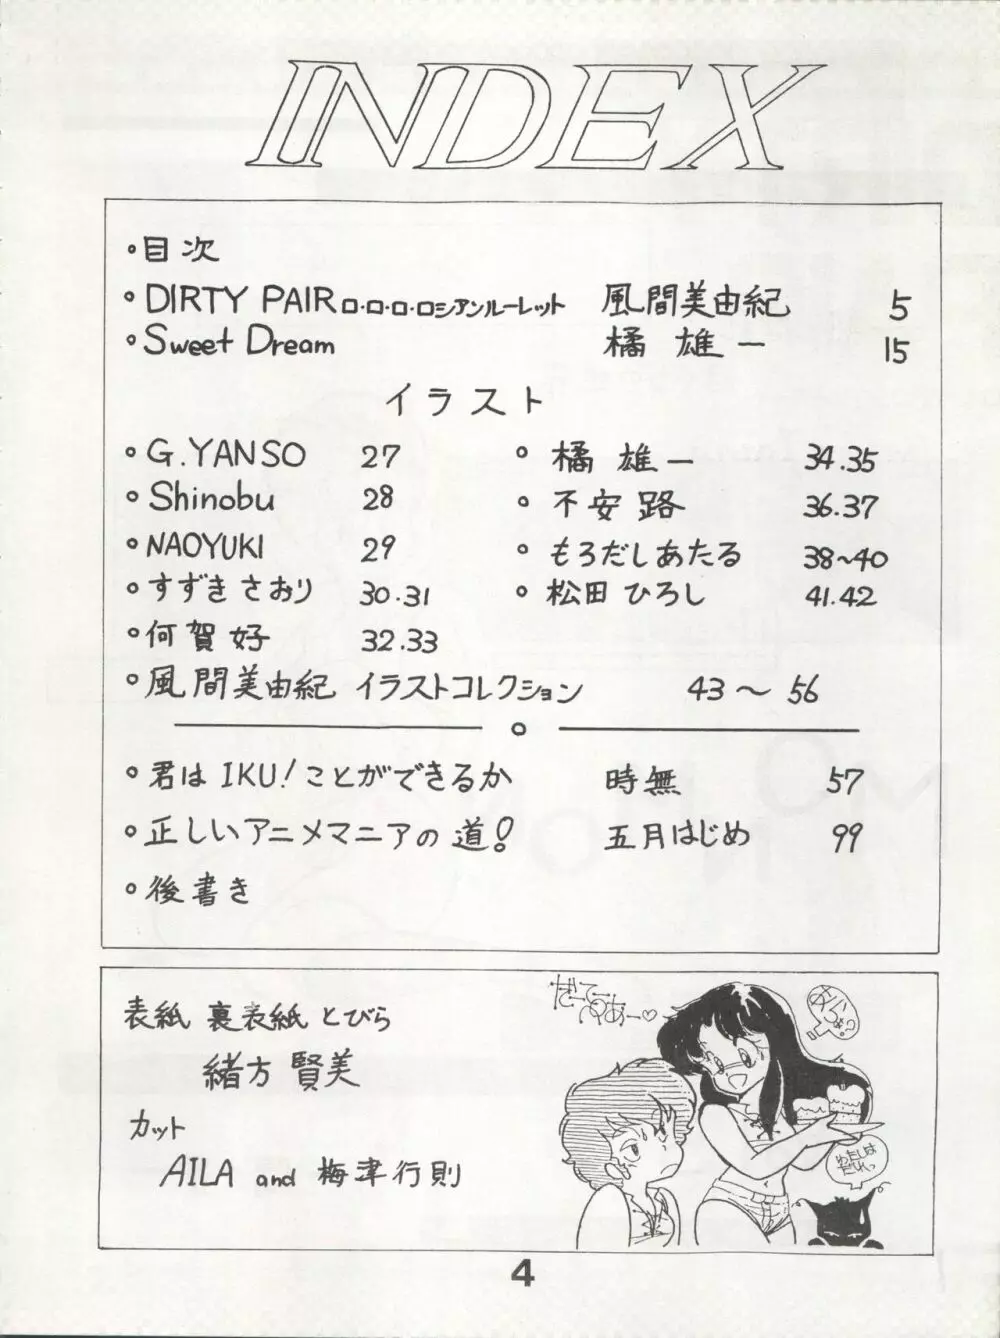 INDEX
•目次
•DIRTY PAIRロ・ロ・ロ・ロシアンルーレット 風間美由紀 5
•Sweet Dream 橘 雄一 15
イラスト
•G.YANSO 27
•Shinobu 28
•NAOYUKI 29
•すずき さおり 30.31
•何賀好 32.33
•橘 雄一 34.35
•不安路 36.37
•もろだしあたる 38~40
•松田 ひろし 41.42
•風間美由紀 イラストコレクション 43〜56
•君は IKU! ことができるか 時無 57
•正しいアニメマニアの道! 五月はじめ 99
•後書き
表紙 裏表紙 とびら
緒方 賢美
カット
AILA and 梅津行則
わたしは
だれっ
4